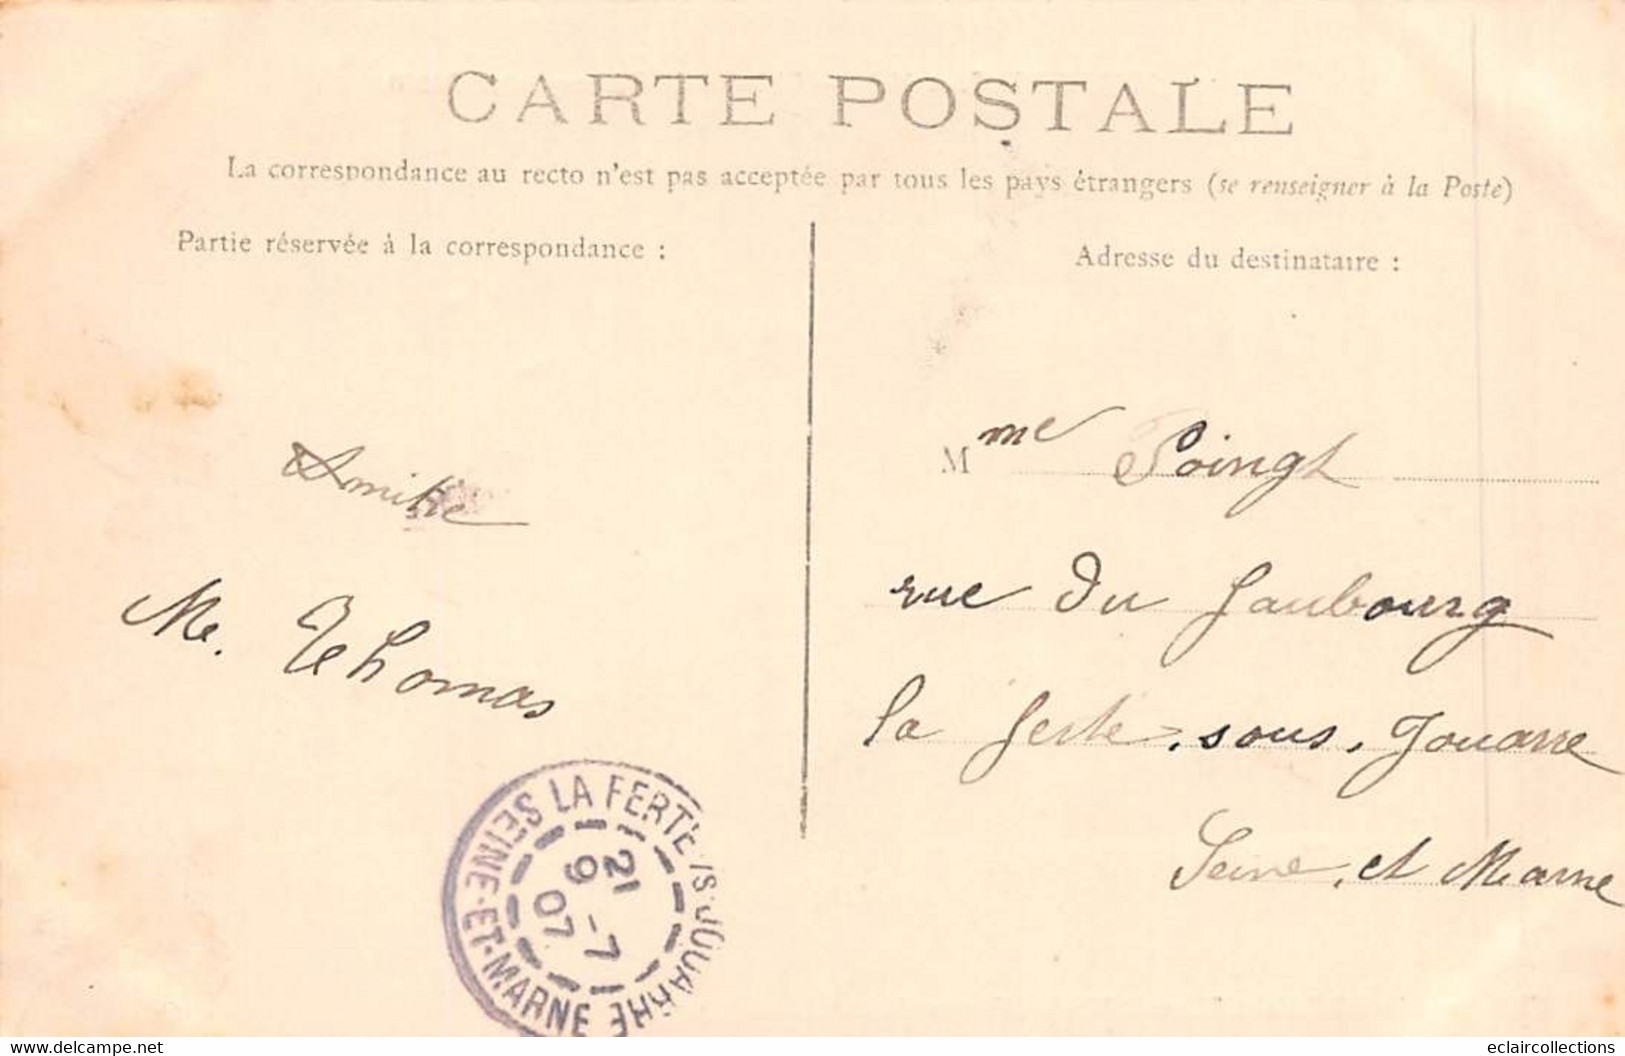 CARTE POSTALE
La correspondance au recto n'est pas acceptée par tous les pays étrangers (se renseigner à la Poste)
Partie réservée à la correspondance :
Adresse du destinataire :
Amitié
M. Thomas
Mme
rue du faubourg
la ferte, sous, Jouarre
Seine, et Marne
SEINE-ET-MARNE LA FERTE-/S-JOUARRE
21
9 -7
07
www.delcampe.net
eclaircollections